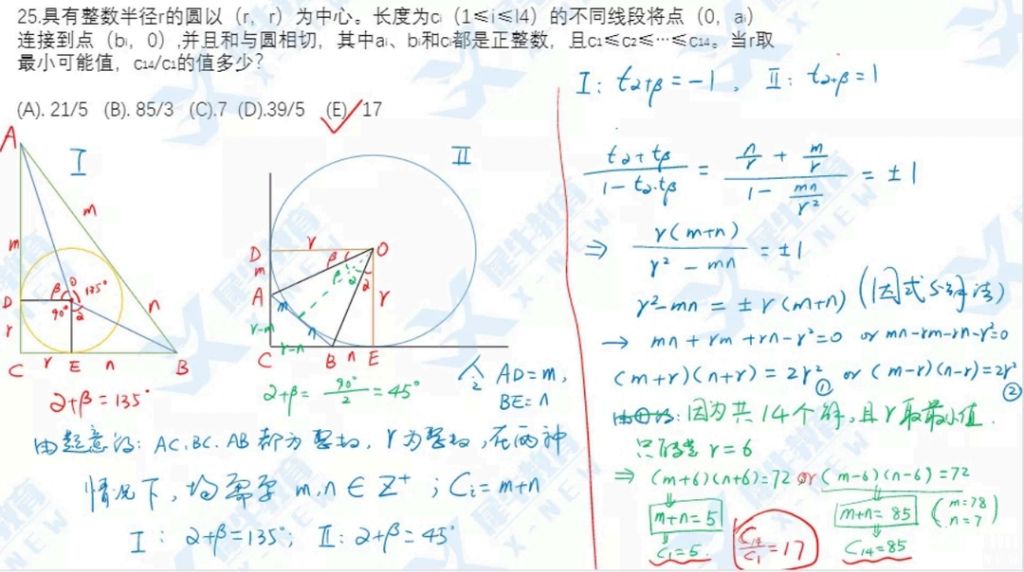 25.具有整数半径r的圆以（r，r）为中心。长度为cᵢ（1≤i≤14）的不同线段将点（0，aᵢ）
连接到点（bᵢ，0）,并且和与圆相切，其中aᵢ、bᵢ和cᵢ都是正整数，且c₁≤c₂≤…≤c₁₄。当r取
最小可能值，c₁₄/c₁的值多少?
(A). 21/5 (B). 85/3 (C).7 (D).39/5 (E). 17
A
I
m
m
D
β
O
135°
90°
α
n
r
C
r
E
n
B
α+β=135°
II
D
r
O
m
β
β
α
α
A
m
r
r-m
n
C
r-n
B
n
E
α+β= 90°/2 =45°
令 AD=m,
BE=n
由题意得: AC.BC.AB都为整数, r为整数, 在两种
情况下, 均需要 m,n∈Z⁺ ; Cᵢ=m+n
I : α+β=135°; II: α+β=45°
I: tα+β=-1, II: tα+β=1
(tα+tβ)/(1-tα·tβ) = (n/r + m/r)/(1 - mn/r²) = ±1
⇒ r(m+n)/(r²-mn) = ±1
r²-mn = ±r(m+n) (因式分解法)
→ mn+rm+rn-r²=0 or mn-rm-rn-r²=0
(m+r)(n+r)=2r² ① or (m-r)(n-r)=2r² ②
因为共14个解, 且r取最小值.
只能是 r=6
⇒ (m+6)(n+6)=72 or (m-6)(n-6)=72
m+n=5
m+n=85 (m=78
n=7)
C₁=5.
C₁₄/C₁=17
C₁₄=85